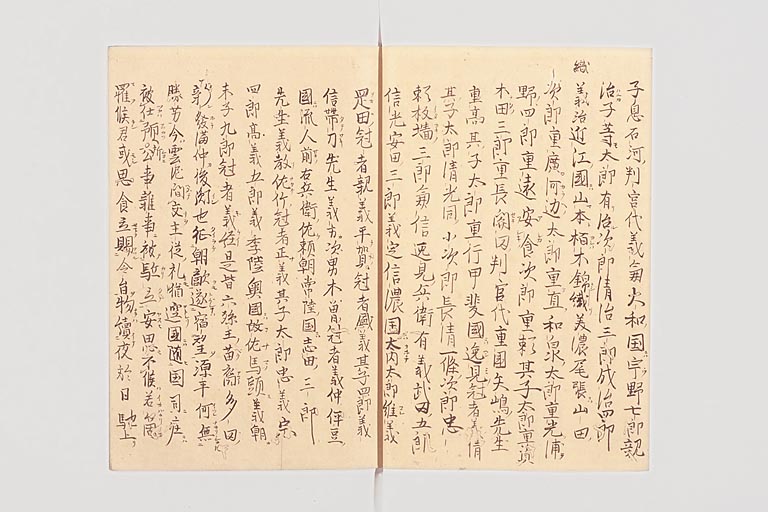 子息石河判官代義兼大和国宇野七郎親
治子等太郎有治次郎清治三郎成治四郎
義治近江國山本栢木錦織美濃尾張山田
次郎重廣河辺太郎重直和泉太郎重光浦
野四郎重遠安食次郎重頼其子太郎重資
木田三郎重長関田判官代重國矢嶋先生
重高其子太郎重行甲斐國逸見冠者義清
其子太郎清光同小次郎長清一條次郎忠
頼板垣三郎兼信逸見兵衛有義武田五郎
信光安田三郎義定信濃国大内太郎維義
冠者親義平賀冠者盛義其子四郎義
信帯刀先生義方次男木曽冠者義仲伊豆
國流人前右兵衛佐頼朝常陸国志田三郎
先生義教佐竹冠者正義其子太郎忠義宗
四郎高義五郎義季陸奥國故佐馬頭義朝
末子九郎冠者義経是皆六孫王苗裔多田
新發満仲後胤也征朝敵遂宿望源平何無
勝劣今雲泥隔交主従礼猶國随国司庄
被仕所公事雜事被駈立安思不候若
羅候君或思食立賜令旨物續夜於日馳上
織